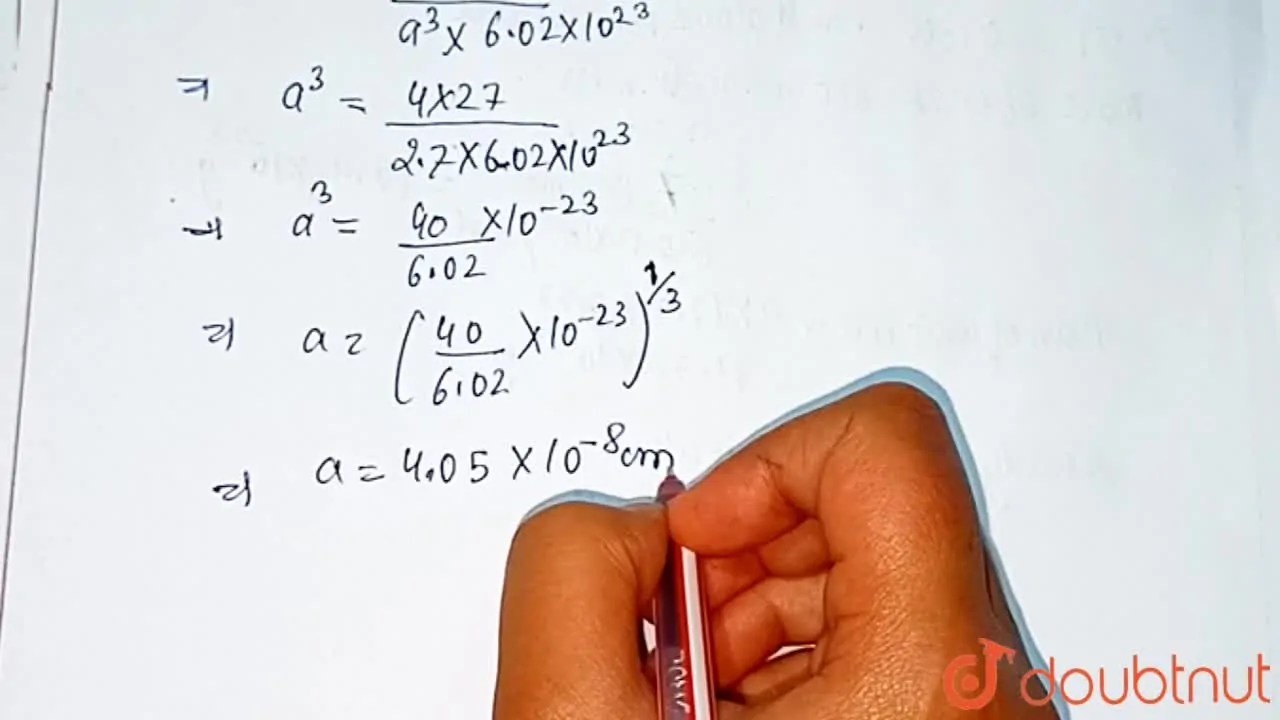 a³ × 6.02×10²³
⇒ a³ = 4×27 / 2.7×6.02×10²³
⇒ a³ = 40 ×10⁻²³ / 6.02
⇒ a = (40/6.02 ×10⁻²³)^1/3
⇒ a = 4.05 ×10⁻⁸cm
doubtnut